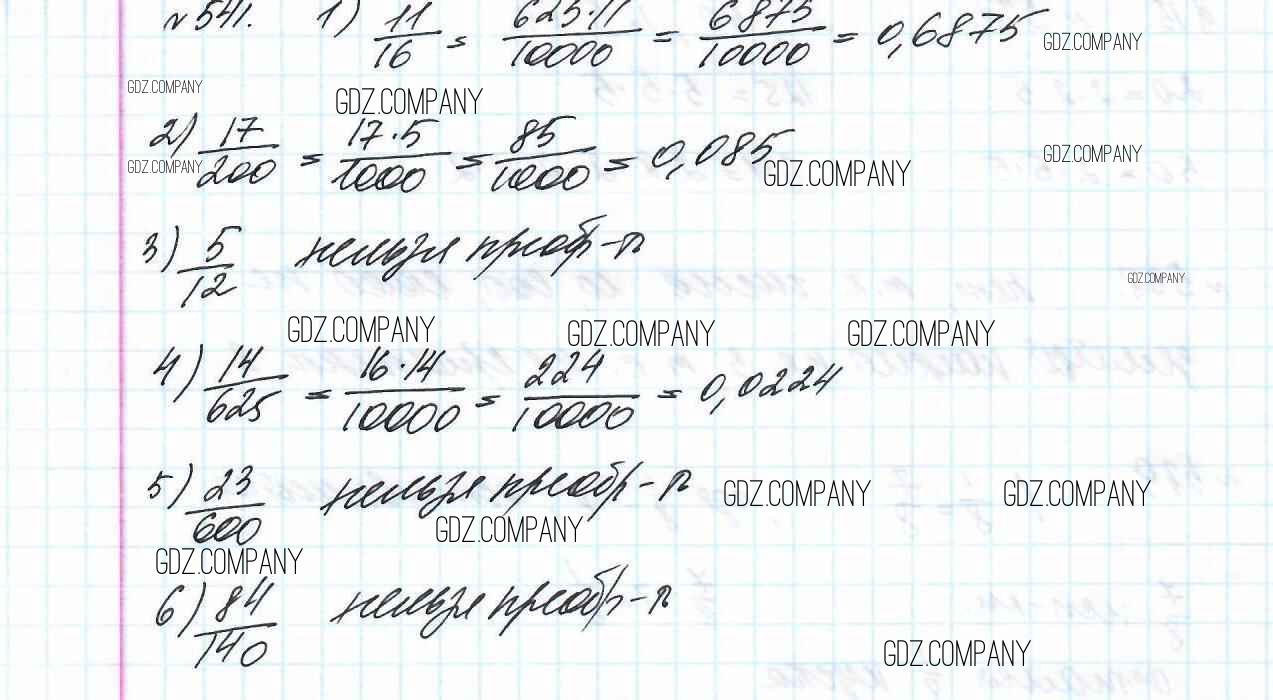 № 541. 1) 11/16 = 625·11/10000 = 6875/10000 = 0,6875 GDZ.COMPANY
GDZ.COMPANY GDZ.COMPANY
2) 17/200 = 17·5/1000 = 85/1000 = 0,085 GDZ.COMPANY
GDZ.COMPANY GDZ.COMPANY
3) 5/12 нельзя преобр-ть
GDZ.COMPANY
GDZ.COMPANY GDZ.COMPANY GDZ.COMPANY
4) 14/625 = 16·14/10000 = 224/10000 = 0,0224
5) 23/600 нельзя преобр-ть GDZ.COMPANY GDZ.COMPANY
GDZ.COMPANY
GDZ.COMPANY
6) 84/140 нельзя преобр-ть
GDZ.COMPANY